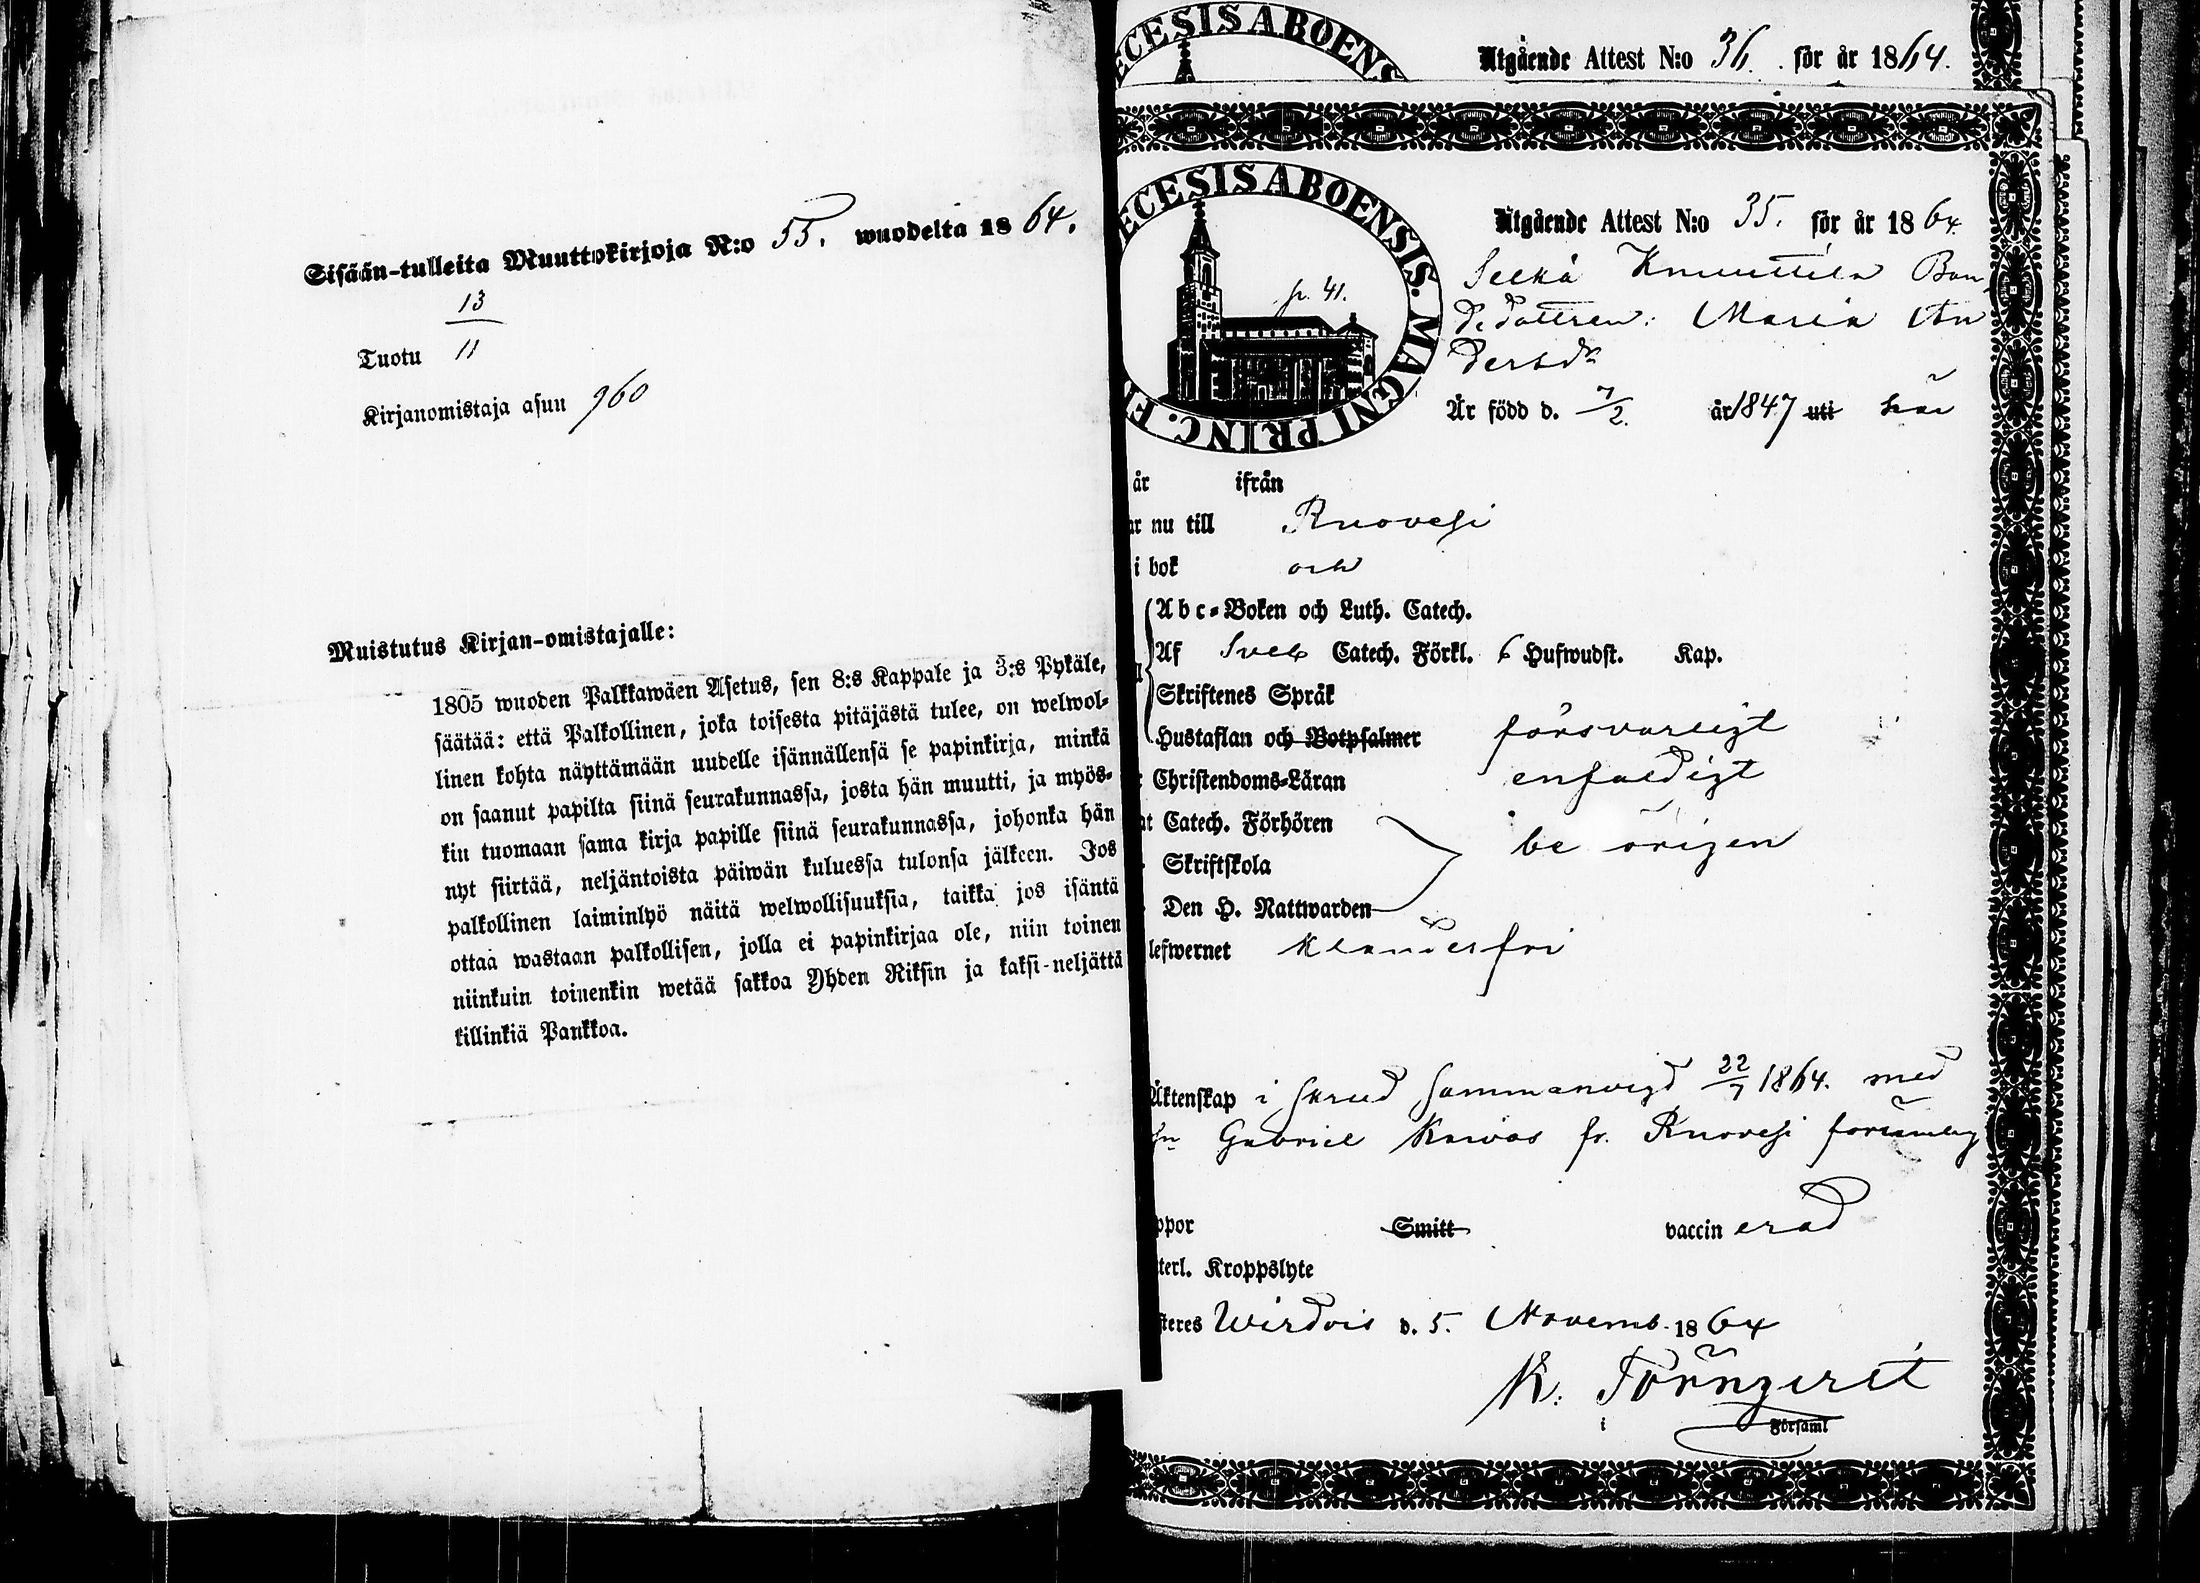 Sisään-tulleita Muuttokirjoja N:o 55. wuodelta 1864.
13
Tuotu 11
Kirjanomistaja asun 960
Muistutus Kirjan-omistajalle:
1805 wuoden Palkkawäen Asetus, sen 8:s Kappale ja 3:s Pykäle,
säätää: että Palkollinen, joka toisesta pitäjästä tulee, on welwol-
linen kohta näyttämään uudelle isännällensä se papinkirja, minkä
on saanut papilta siinä seurakunnassa, josta hän muutti, ja myös-
kin tuomaan sama kirja papille siinä seurakunnassa, johonka hän
nyt siirtää, neljäntoista päiwän kuluessa tulonsa jälkeen. Jos
palkollinen laiminlyö näitä welwollisuuksia, taikka jos isäntä
ottaa wastaan palkollisen, jolla ei papinkirjaa ole, niin toinen
niinkuin toinenkin wetää sakkoa Yhden Riksin ja kaksi-neljättä
killinkiä Pankkoa.
ECESIS ABOENS
Utgående Attest N:o 36. för år 1864.
ECESIS ABOENSIS. MAGNI PRINC. F
p. 41.
Utgående Attest N:o 35. för år 1864
Knuuttila Bon
dedottren: Maria An
dersdr
Är född d. 7/2. år 1847 uti här
år ifrån
ar nu till Ruovesi
i bok och
Abc-Boken och Luth. Catech.
Af Sveb Catech. Förkl. 6 Hufwudst. Kap.
Skriftenes Språk
Hustaflan och Botpsalmer försvarligt
Christendoms-Läran enfaldigt
at Catech. Förhören be origen
Skriftskola
Den H. Nattwarden
lefwernet klanderfri
Äktenskap i härad sammanvigd 22/7 1864. med
Gabriel fr. Ruovesi
ppor Smitt vaccinerad
terl. Kroppslyte
steres Wirdois d. 5. Novemb. 1864
K. Törnqvist
i Församl